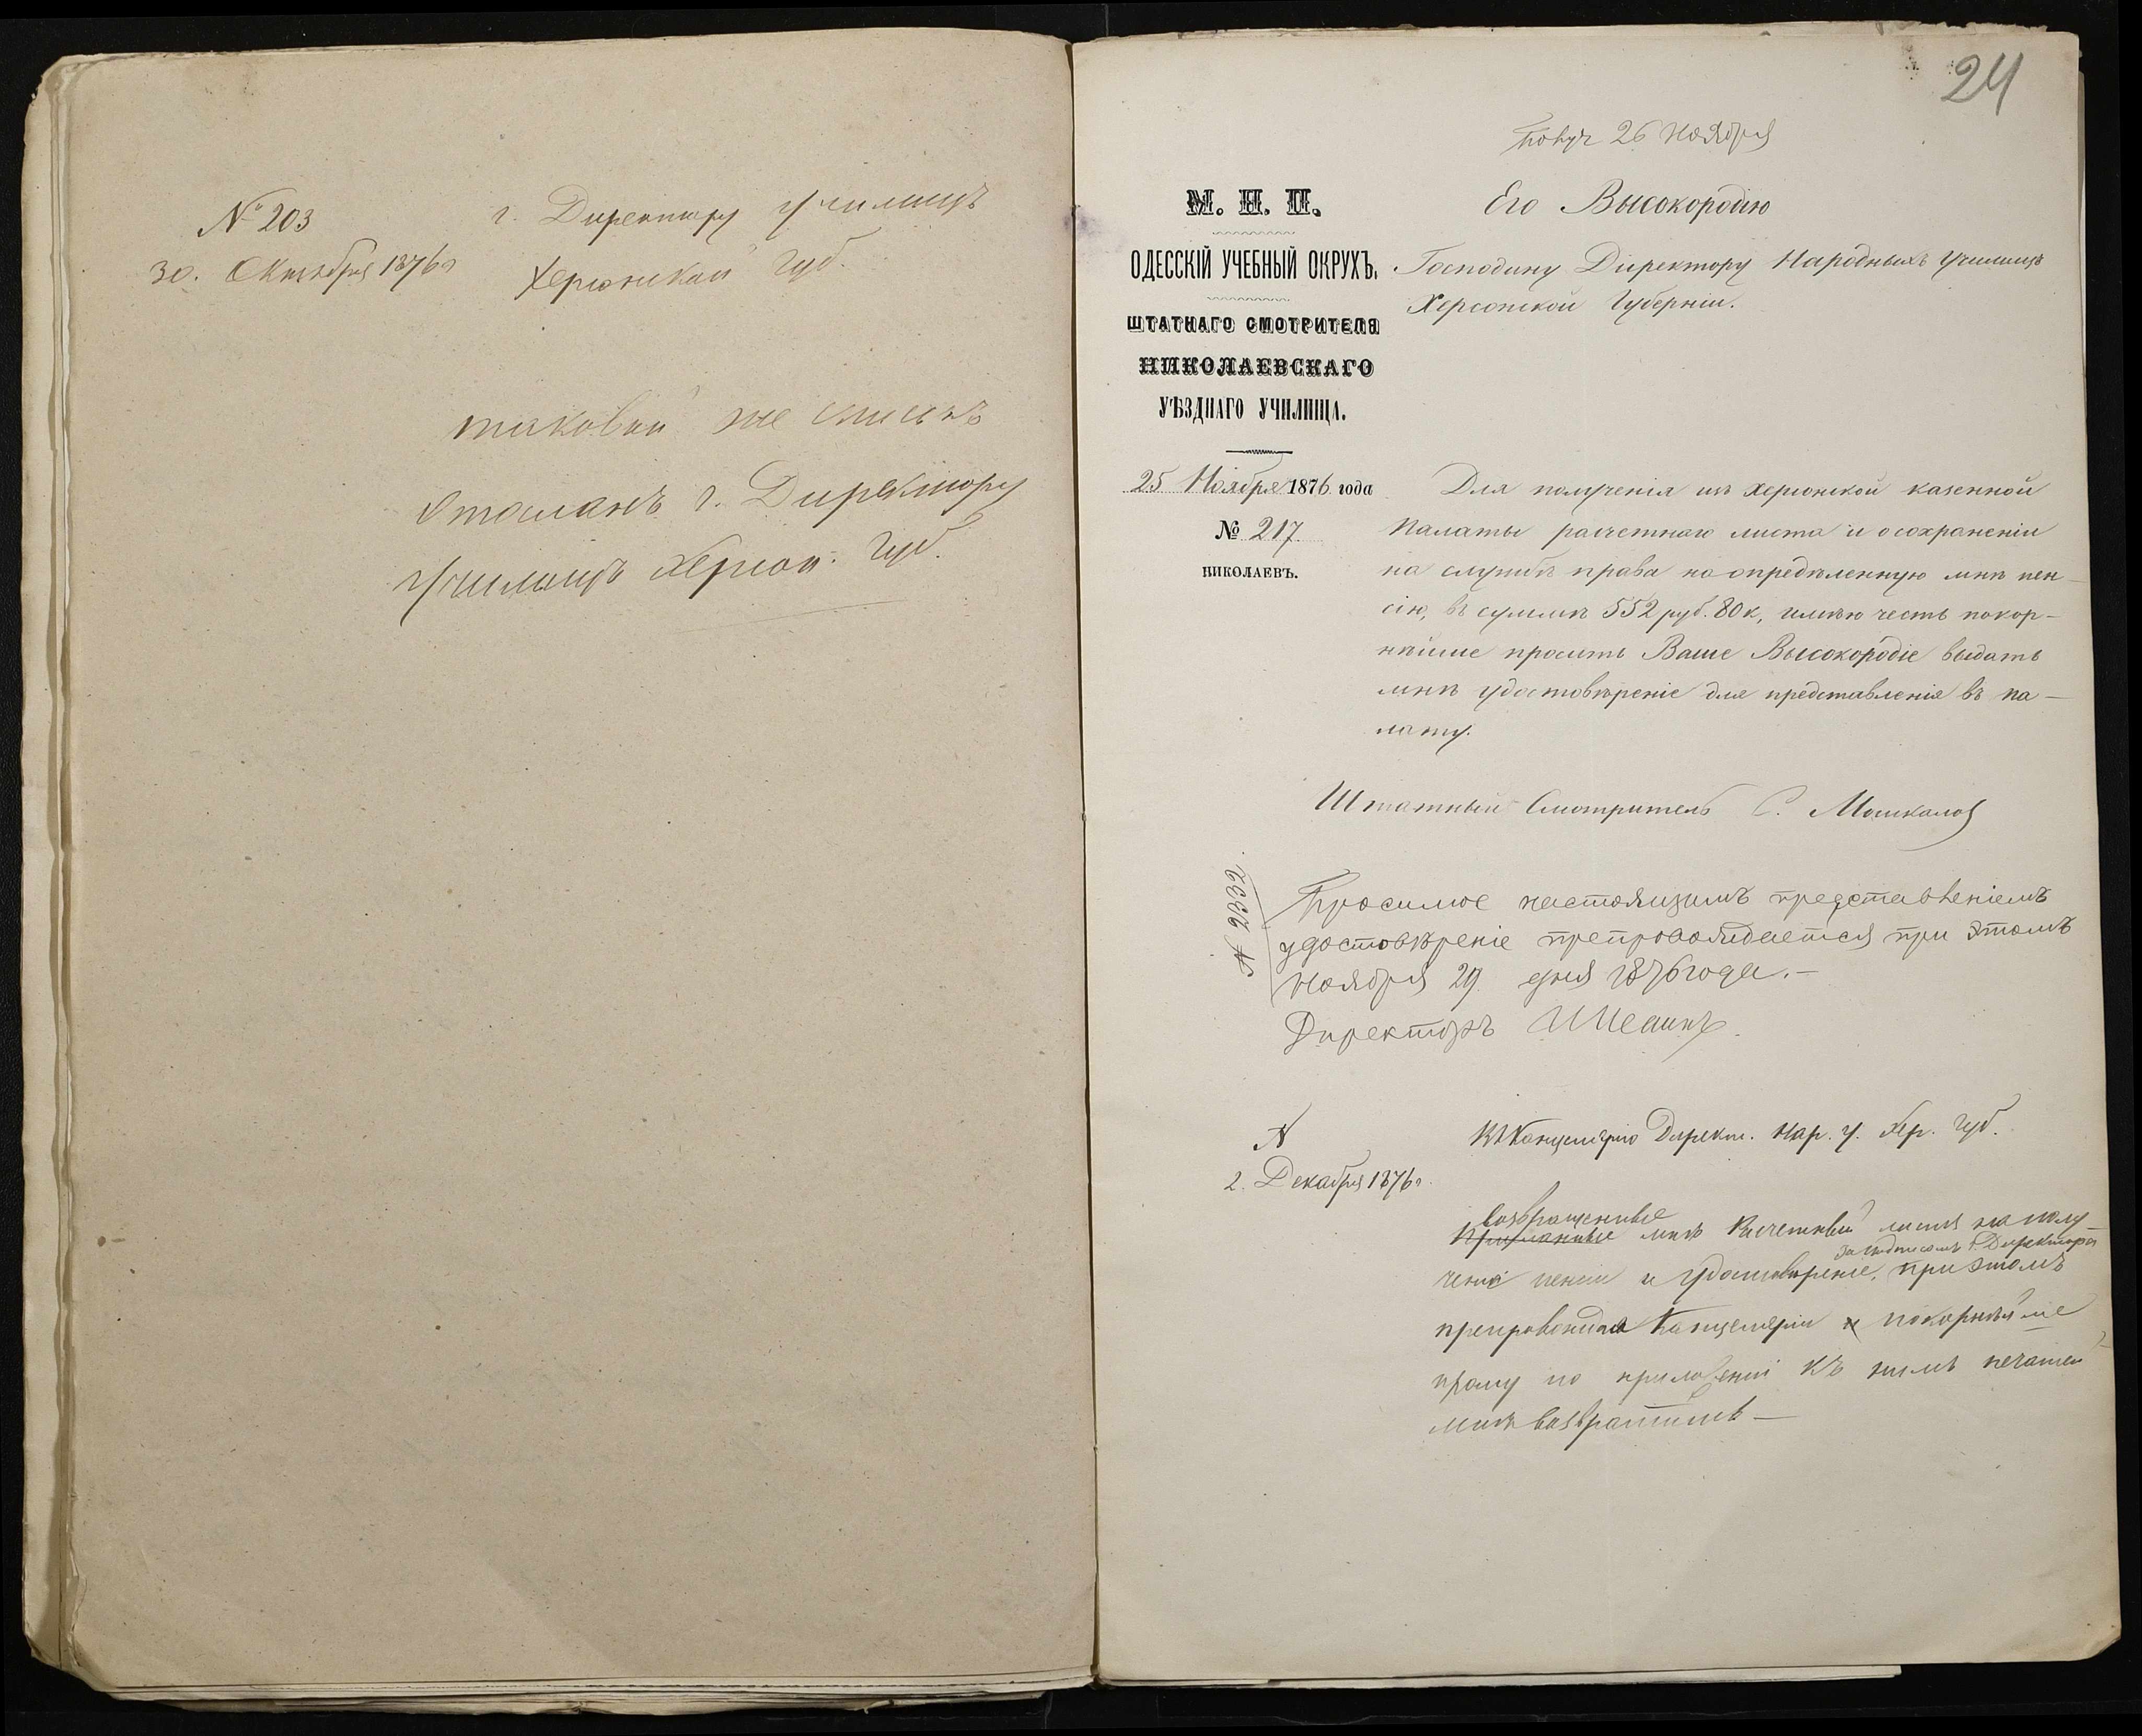 № 203
30. Октября 1876 г
г. Директору училищъ
Херсонской Губ.
таковой же списокъ
отосланъ г. Директору
училищъ Херсон. Губ.
24
Получ 26 Ноября
М. Н. П.
ОДЕССКІЙ УЧЕБНЫЙ ОКРУХЪ.
ШТАТНАГО СМОТРИТЕЛЯ
НИКОЛАЕВСКАГО
УѢЗДНАГО УЧИЛИЩА.
25 Ноября 1876 года
№ 217
НИКОЛАЕВЪ.
Его Высокородію
Господину Директору Народныхъ Училищъ
Херсонской Губерніи.
Для полученія изъ Херсонской казенной
Палаты расчетнаго листа и о сохраненіи
на службѣ права на опредѣленную мнѣ пен-
сію, въ суммѣ 552 руб. 80 к, имѣю честь покор-
нѣйше просить Ваше Высокородіе выдать
мнѣ удостовѣреніе для представленія въ па-
лату.
Штатный Смотритель С.
№ 2332
Просимое настоящимъ представленіемъ
удостовѣреніе препровождается при этомъ
Ноября 29 дня 1876 года.-
Директоръ
№
2. Декабря 1876 г.
Въ Канцелярію Директ. Нар. У. Хер. Губ.
возвращенные
Присланные мнѣ Расчетный листъ на полу-
за подписомъ г. Директора
ченіе пенсіи и удостовѣреніе, при этомъ
препровождая Канцеляріи и покорнѣйше
прошу по приложеніи къ нимъ печатей
мнѣ возвратить —